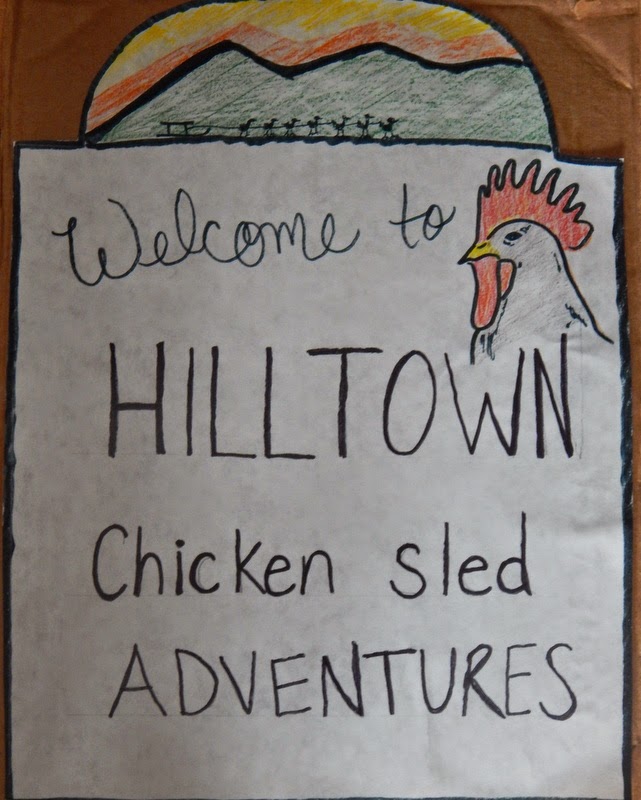 Welcome to
HILLTOWN
Chicken sled
ADVENTURES